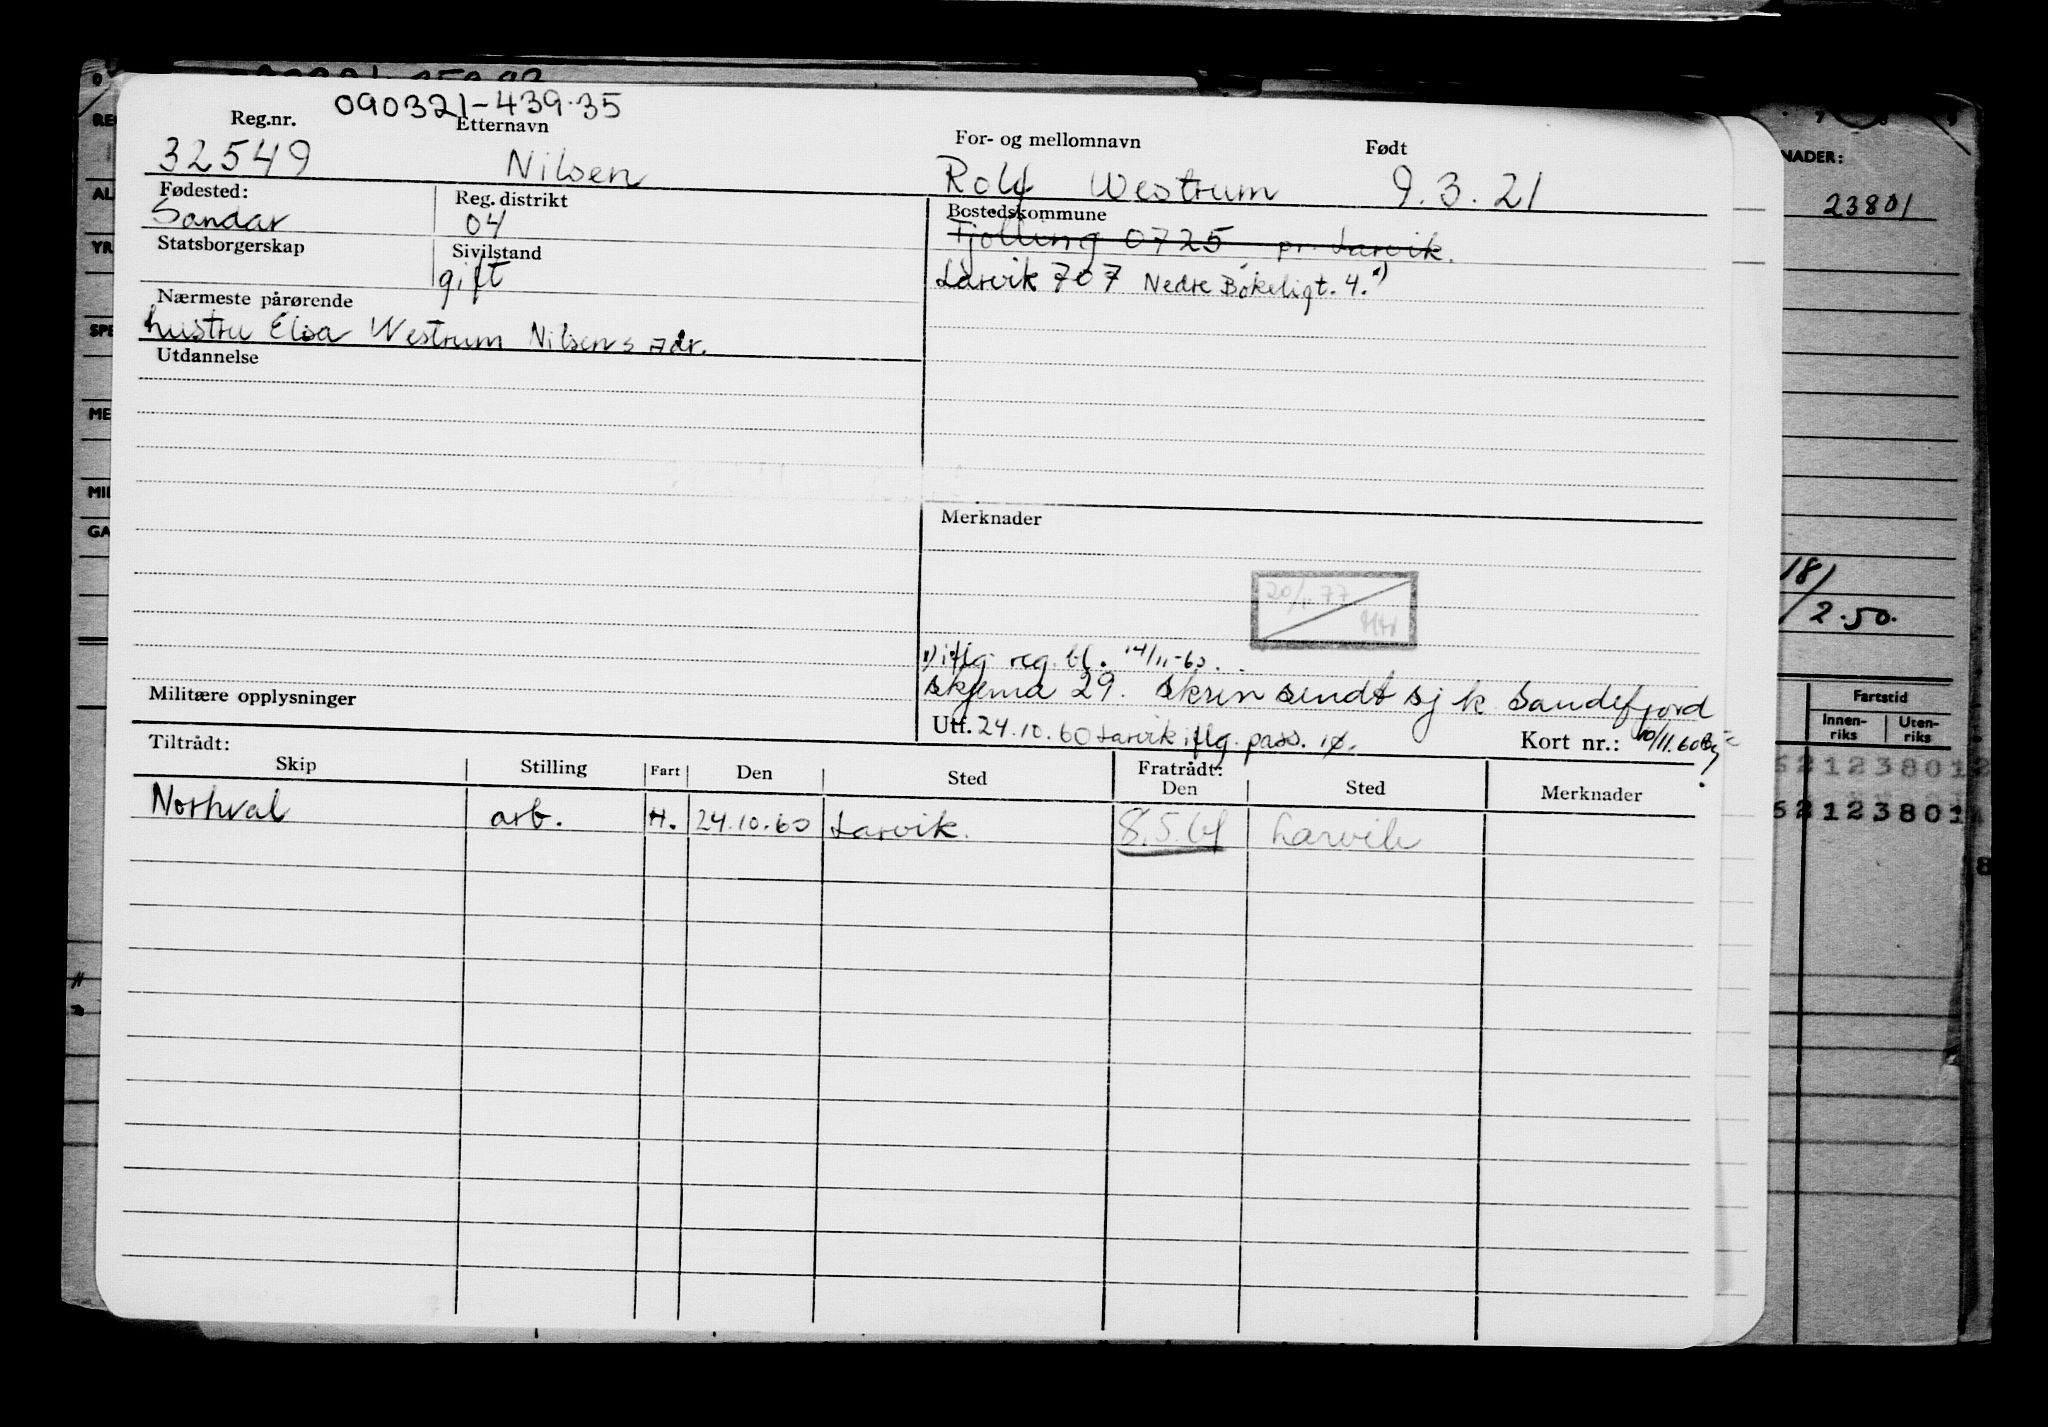 090321-439.35
Reg.nr. Etternavn For- og mellomnavn Født
32549 Nilsen Rolf Westrum 9.3.21
Fødested: Reg. distrikt Bostedskommune
Sandar 04 Tjølling 0725 pr. Larvik.
Statsborgerskap Sivilstand
gift Larvik 707 Nedre Bøkeligt. 4. 1)
Nærmeste pårørende
hustru Elsa Westrum Nilsen s adr.
Utdannelse
Merknader
20/1 77
1) iflg. reg. bl. 14/11-60.
skjema 29. skrin sendt sj k Sandefjord
Militære opplysninger
Utf. 24.10.60 Larvik iflg. pass. Kort nr.: 10/11.60
Tiltrådt: Fratrådt:
Skip Stilling Fart Den Sted Den Sted Merknader
Northval arb. H. 24.10.60 Larvik. 8.5.61 Larvik
NADER:
23801
18/
/2.50.
Fartstid
Innen-riks Uten-riks
52123801
52123801